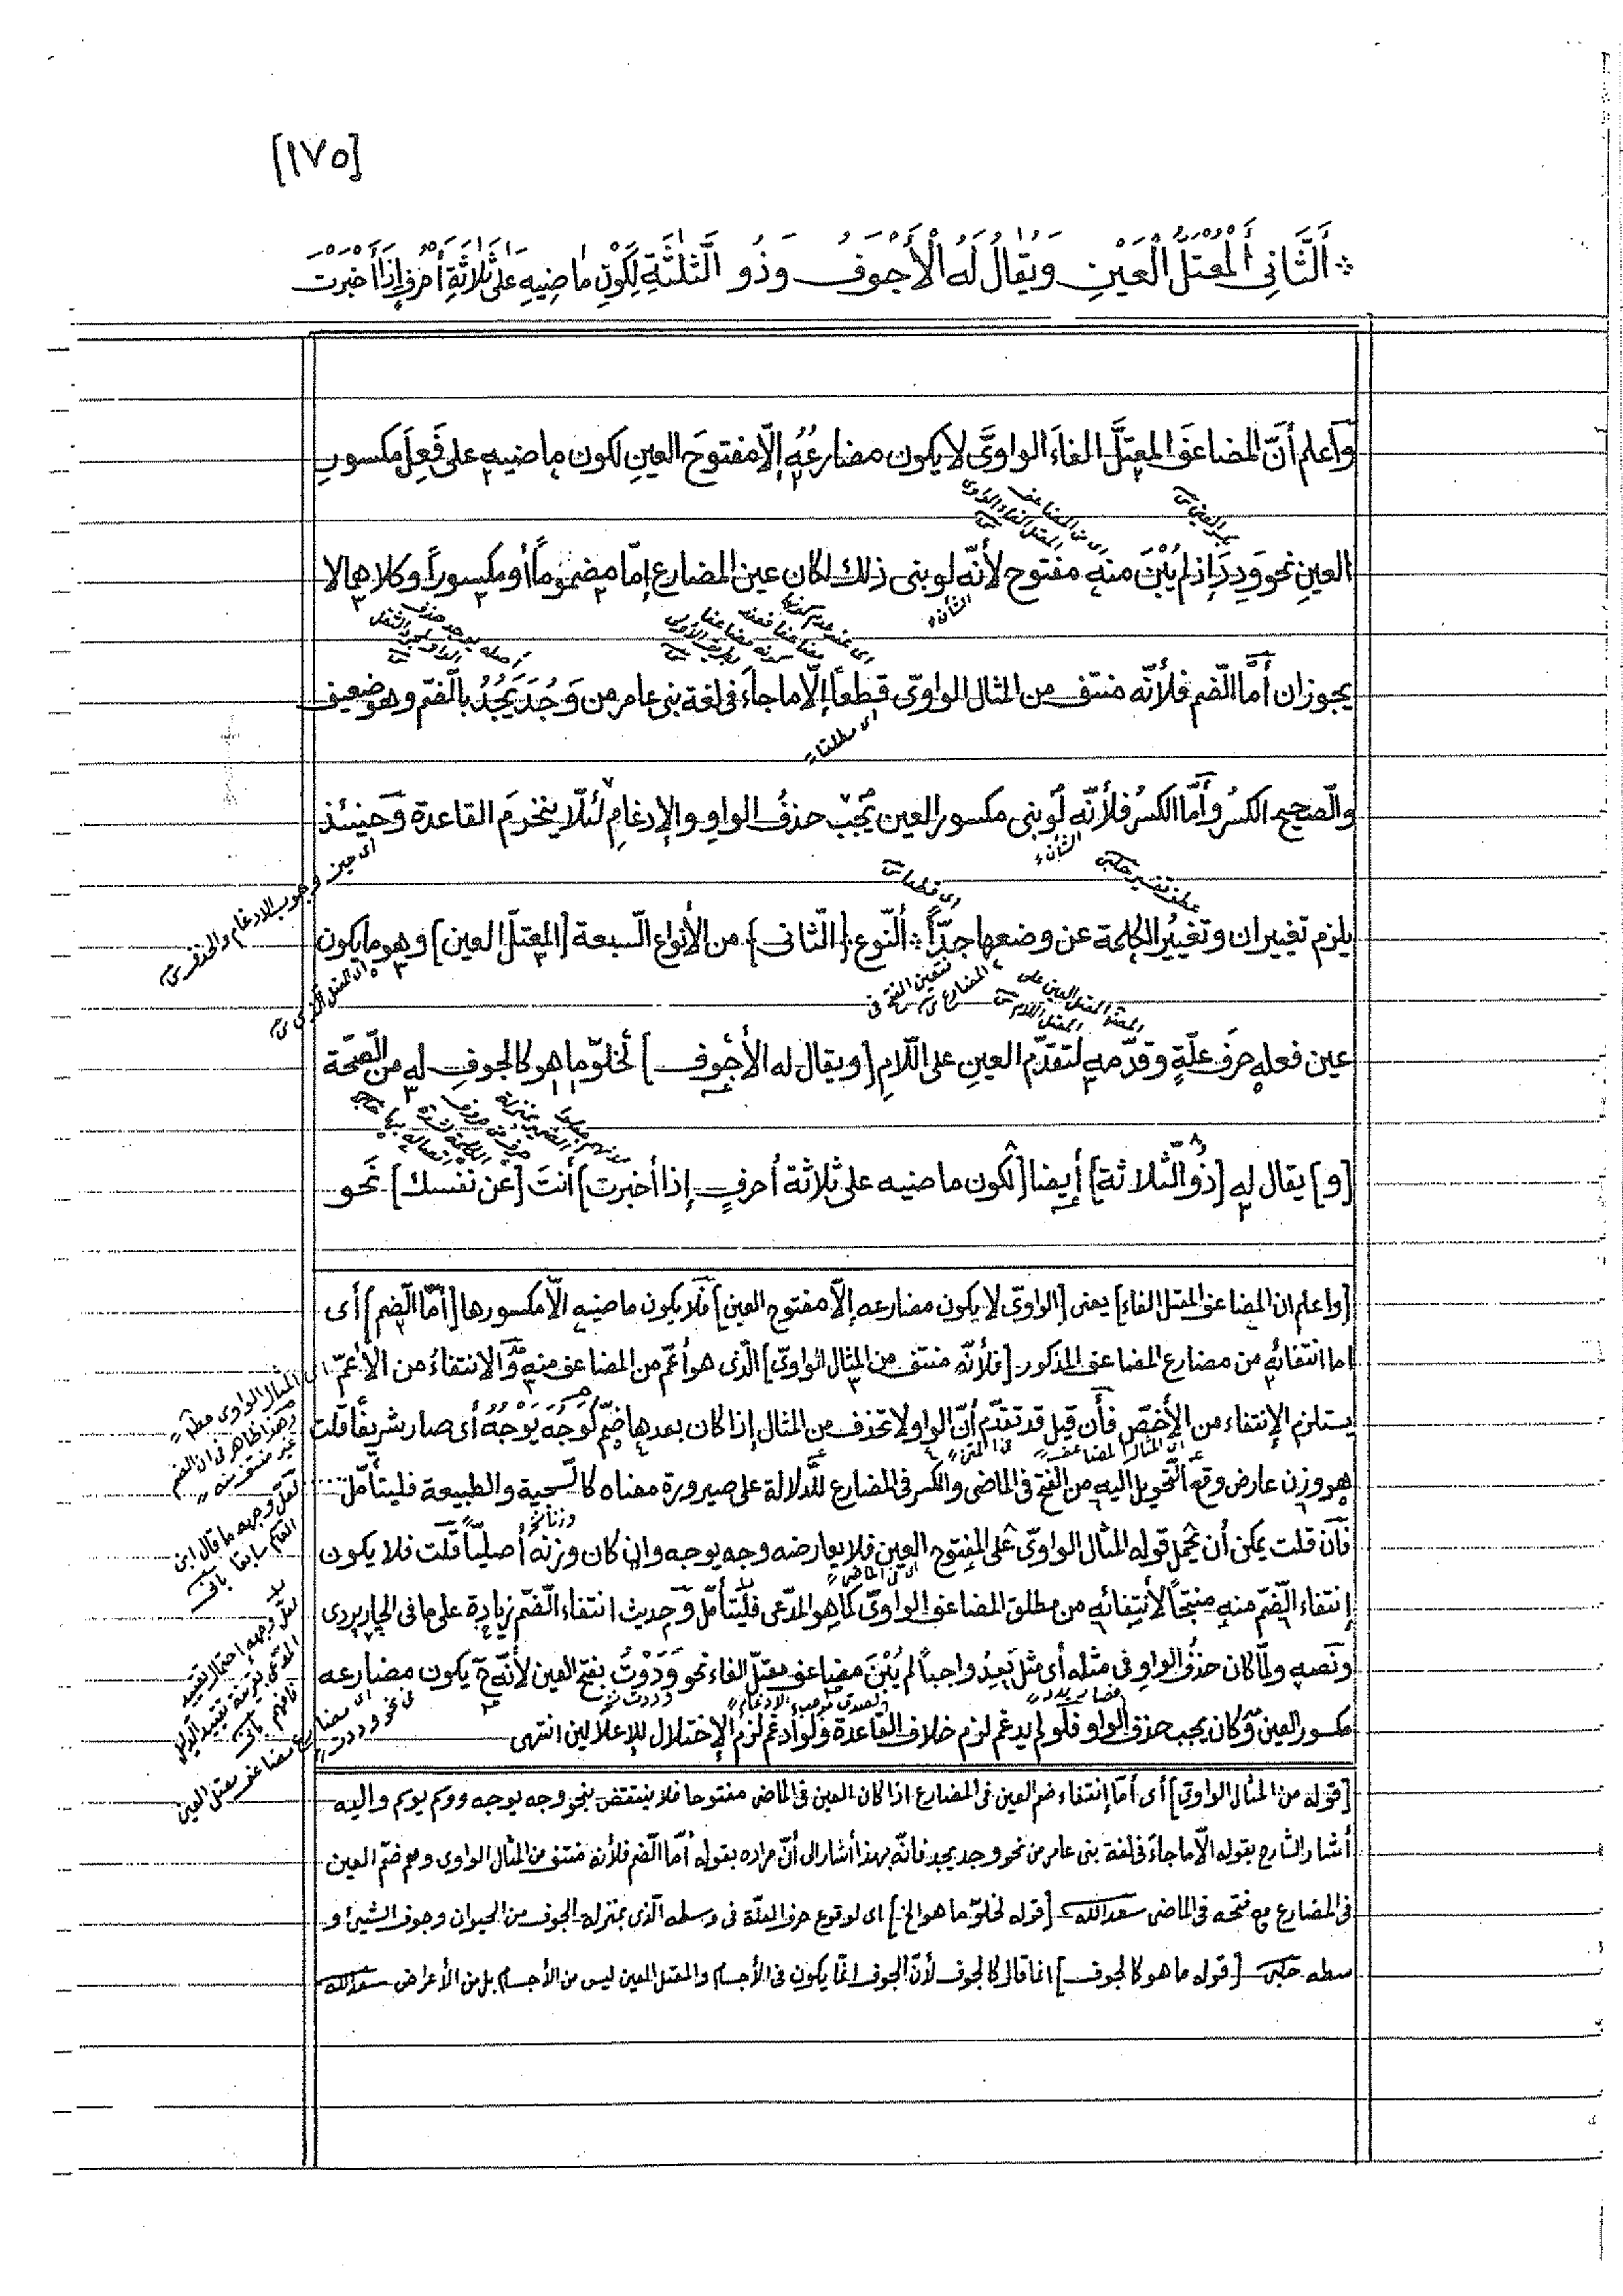 [١٧٥]
* اَلثَّانِى اَلْمُعْتَلُّ الْعَيْنِ وَيُقَالُ لَهُ الْأَجْوَفُ وَذُو الثَّلٰثَةِ لِكَوْنِ مَاضِيهِ عَلَى ثَلَاثَةِ أَحْرُفٍ إِذَا أَخْبَرْتَ
وٱعلم أنّ المضاعفَ المعتلَّ الفاءَ الواوىَّ لا يكون مضارعُهُ إلّا مفتوحَ العينِ لكون ماضيهِ على فَعِلَ مكسورِ
بكسر العين
اى من المضاعف
المعتل الفاء الواوى
العينِ نحو وَدِدَ إذ لم يُبْنَ منه مفتوح لأنّه لو بنى ذلك لكان عين المضارع إمّا مضموماً أو مكسوراً وكلاهما لا
الشأن
يجوزان أمّا الضّم فلأنّه منتف من المثال الواوىّ قطعاً إلّا ما جاءَ فى لغة بنى عامر من وَجَدَ يَجُدُ بالضّم وهو ضعيف
اى مطلقا
والصّحيح الكسرُ وأمّا الكسرُ فلأنّه لو بنى مكسور العين يَجب حذفُ الواوِ والإدغامِ لئلّا ينخرمَ القاعدة وحينئذ
الشأن
عطف تفسير
اى قطعا
اى حين وجوب الادغام والحذف
يلزم تغييران وتغيُيرُ الكلمة عن وضعها جدّاً * ألنّوع [الثّانى] من الأنواع السّبعة [المعتلّ العين] وهو ما يكون
المعتل العين على
المعتل اللام
عين فعله حرفَ علّةٍ وقدّمه لتقدّم العينِ على اللّامِ [ويقال له الأجوف] لخلوّ ما هو كالجوفِ له من الصّحّة
[و] يقال له [ذُو الثّلاثة] أيضا [لكون ماضيه على ثلاثة أحرفٍ إذا أخبرت] أنتَ [عن نفسك] نحو
[واعلم ان المضاعف المعتل الفاء] يعنى [الواوىّ لا يكون مضارعه إلّا مفتوح العين] فلا يكون ماضيه الّا مكسورها [أمّا الضّم] أى
اما انتفائه من مضارع المضاعف المذكور [فلأنّه منتف من المثال الواوىّ] الّذى هو أعمّ من المضاعف منه والانتفاءُ من الأعمّ
يستلزم الإنتفاء من الأخصّ فأن قيل قد تقدّم أنّ الواو لا تحذف من المثال إذا كان بعدها ضمّ كوَجُهَ يَوْجُهُ أى صار شريفًا قلت
هو وزن عارض وقع التّحويل اليه من الفتح فى الماضى والكسر فى المضارع للدّلالة على صيرورة معناه كالسّجية والطبيعة فليتأمّل
فأن قلت يمكن أن يحمل قوله المثال الواوىّ على المفتوح العين فلا يعارضه وجه يوجه وان كان وزنه أصليّاً قلت فلا يكون
إنتفاء الضّم منه منتجاً لأنتفائه من مطلق المضاعف الواوىّ كما هو المدّعى فليتأمّل وحديث انتفاء الضّم زيادة على ما فى الجاربردى
ونصه ولمّا كان حذفُ الواو فى مثله أى مثل يَعِدُ واجباً لم يُبْنَ مضاعف معتلّ الفاء نحو وَدَدْتُ بفتح العين لأنّه ح يكون مضارعه
مكسور العين وكان يجب حذف الواو فلو لم يدغم لزم خلاف القاعدة ولو أدغم لزم الإختلال للإعلالين انتهى
لعلّ وجهه ما قال ابن
القاسم سابقا
لعل وجهه احتمال تقييد
المدعى بقرينة تقييد الدليل
فافهم
[قوله من المثال الواوىّ] أى أمّا إنتفاء ضم العين فى المضارع اذا كان العين فى الماضى مفتوحا فلا ينتقض بنحو وجه يوجه ووسم يوسم واليه
أشار الشارح بقوله الّا ما جاءَ فى لغة بنى عامر من نحو وجد يجد فانّه بهذا أشار الى أنّ مراده بقوله أمّا الضم فلأنه منتف من المثال الواوى وهو ضمّ العين
فى المضارع مع فتحه فى الماضى سعد الله [قوله لخلوّ ما هو الخ] اى لوقوع حرف العلّة فى وسطه الّذى بمنزلة الجوف من الحيوان وجوف الشيئ و
سطه [قوله ما هو كالجوف] انما قال كالجوف لأنّ الجوف انّما يكون فى الأجسام والمعتل العين ليس من الأجسام بل من الأعراض سعد الله